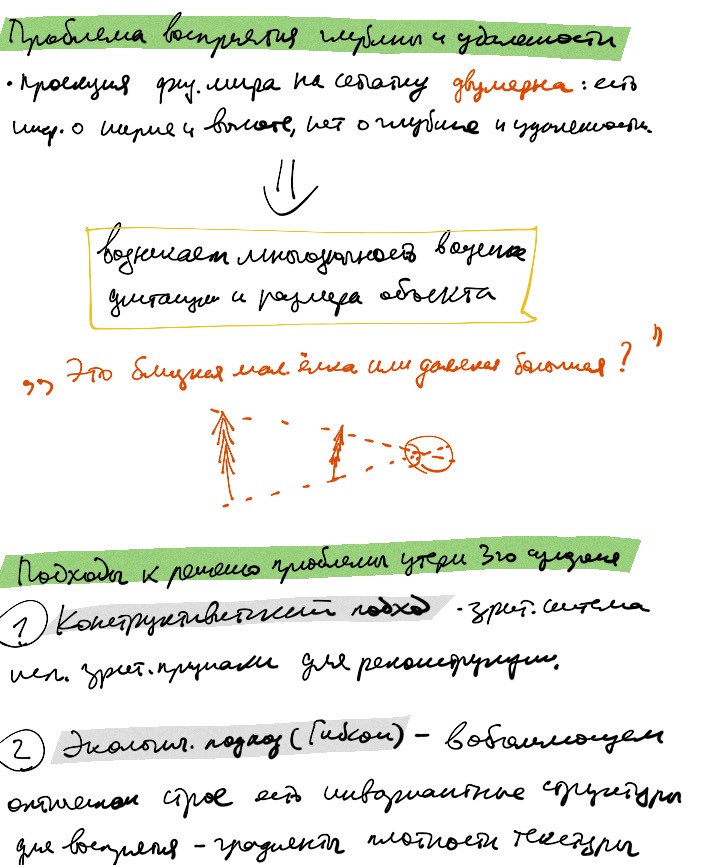 Проблема восприятия глубины и удаленности
• Проекция физ. мира на сетчатку двумерна: есть
инф. о ширине и высоте, нет о глубине и удаленности.
возникает многозначность в оценке
дистанции и размера объекта
„Это близкая мал. ёлка или далекая большая?"
Подходы к решению проблемы утери 3го измерения
1 Конструктивистский подход - зрит. система
исп. зрит. признаки для реконструкции.
2 Экологич. подход (Гибсон) – в объемлющем
оптическом строе есть инвариантные структуры
для восприятия – градиенты плотности текстуры